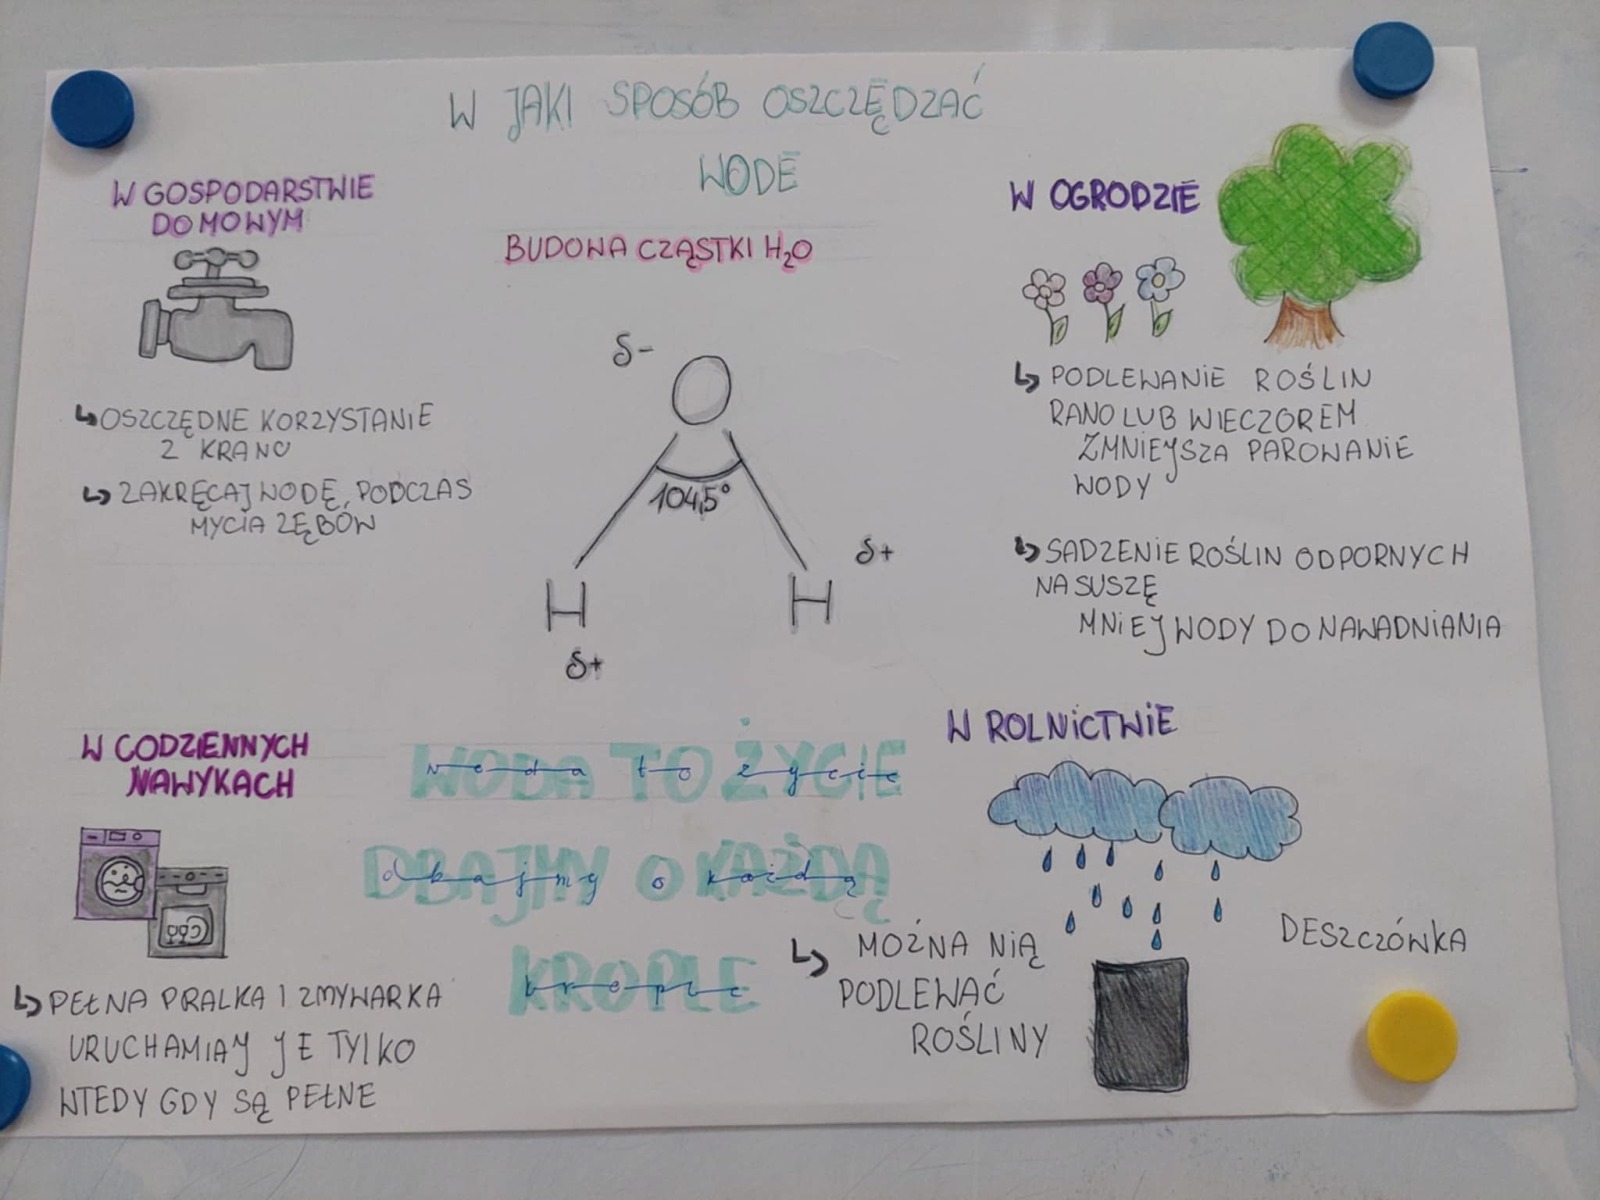 W JAKI SPOSÓB OSZCZĘDZAĆ
WODĘ
W GOSPODARSTWIE
DOMOWYM
↳ OSZCZĘDNE KORZYSTANIE
Z KRANU
↳ ZAKRĘCAJ WODĘ, PODCZAS
MYCIA ZĘBÓW
BUDOWA CZĄSTKI H₂O
δ-
104,5°
H
H
δ+
δ+
W OGRODZIE
↳ PODLEWANIE ROŚLIN
RANO LUB WIECZOREM
ZMNIEJSZA PAROWANIE
WODY
↳ SADZENIE ROŚLIN ODPORNYCH
NA SUSZĘ
MNIEJ WODY DO NAWADNIANIA
W CODZIENNYCH
NAWYKACH
↳ PEŁNA PRALKA I ZMYWARKA
URUCHAMIAJ JE TYLKO
WTEDY GDY SĄ PEŁNE
WODA TO ŻYCIE
DBAJMY O KAŻDĄ
KROPLE
W ROLNICTWIE
DESZCZÓWKA
↳ MOŻNA NIĄ
PODLEWAĆ
ROŚLINY